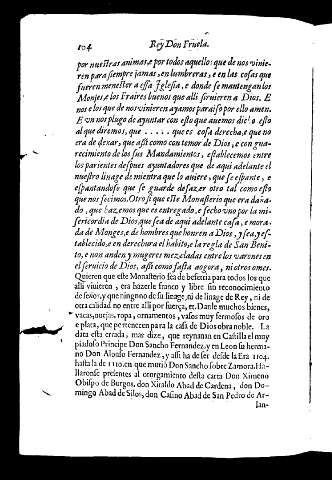 104 Rey Don Fruela.
por nuestras animas, e por todos aquellos que de nos vinie-
ren para siempre jamas, en lumbreras, e en las cosas que
fueren menester a essa Iglesia, e donde se mantengan los
Monjes, e los Fraires buenos que alli sirvieren a Dios. E
nos e los que de nos vinieren ayamos paraiso por ello amen.
E un nos plugo de ayuntar con esto que avemos dicho esto
al que diremos, que ..... que es cosa derecha, e que no
era de dexar, que assi como con temor de Dios, e con gua-
recimiento de los sus Mandamientos, establecemos entre
los parientes despues ayuntadores que de aqui adelante el
nuestro linage de mientra que lo oviere, que se espante, e
espantandose que se guarde desazer otro tal como esto
que nos fecimos. Otro si que este Monasterio que era daña-
do, que hazemos que es entregado, e fecho uno por la mi-
sericordia de Dios, que sea de aqui adelante casa, e mora-
da de Monges, e de hombres que honren a Dios, y sea, y es-
tablecido, e en derechura el habito, e la regla de San Beni-
to, e non anden y mugeres mezcladas entre los varones en
el servicio de Dios, assi como fasta aogora, ni otro omes.
Quieren que este Monasterio sea de befetria para todos los que
alli viuieren, era hazerle franco y libre sin reconocimiento
de señor, y que ninguno de su linage, ni de linage de Rey, ni de
otra calidad no entre alli por fuerça, er. Danle muchos bienes,
vacas, ouejas, ropa, ornamentos, vasos muy fermosos de oro
e plata, que pertenecen para la casa de Dios obra noble. La
data esta errada, mas dize, que reynauan en Castilla el muy
piadoso Principe Don Sancho Fernandez, y en Leon su herma-
no Don Alonso Fernandez, y assi ha de ser desde la Era 1104.
hasta la de 1110. en que murió Don Sancho sobre Zamora. Ha-
llaronse presentes al otorgamiento desta carta Don Ximeno
Obispo de Burgos, don Xiraldo Abad de Cardena, don Do-
mingo Abad de Silos, don Casino Abad de San Pedro de Ar-
lan-